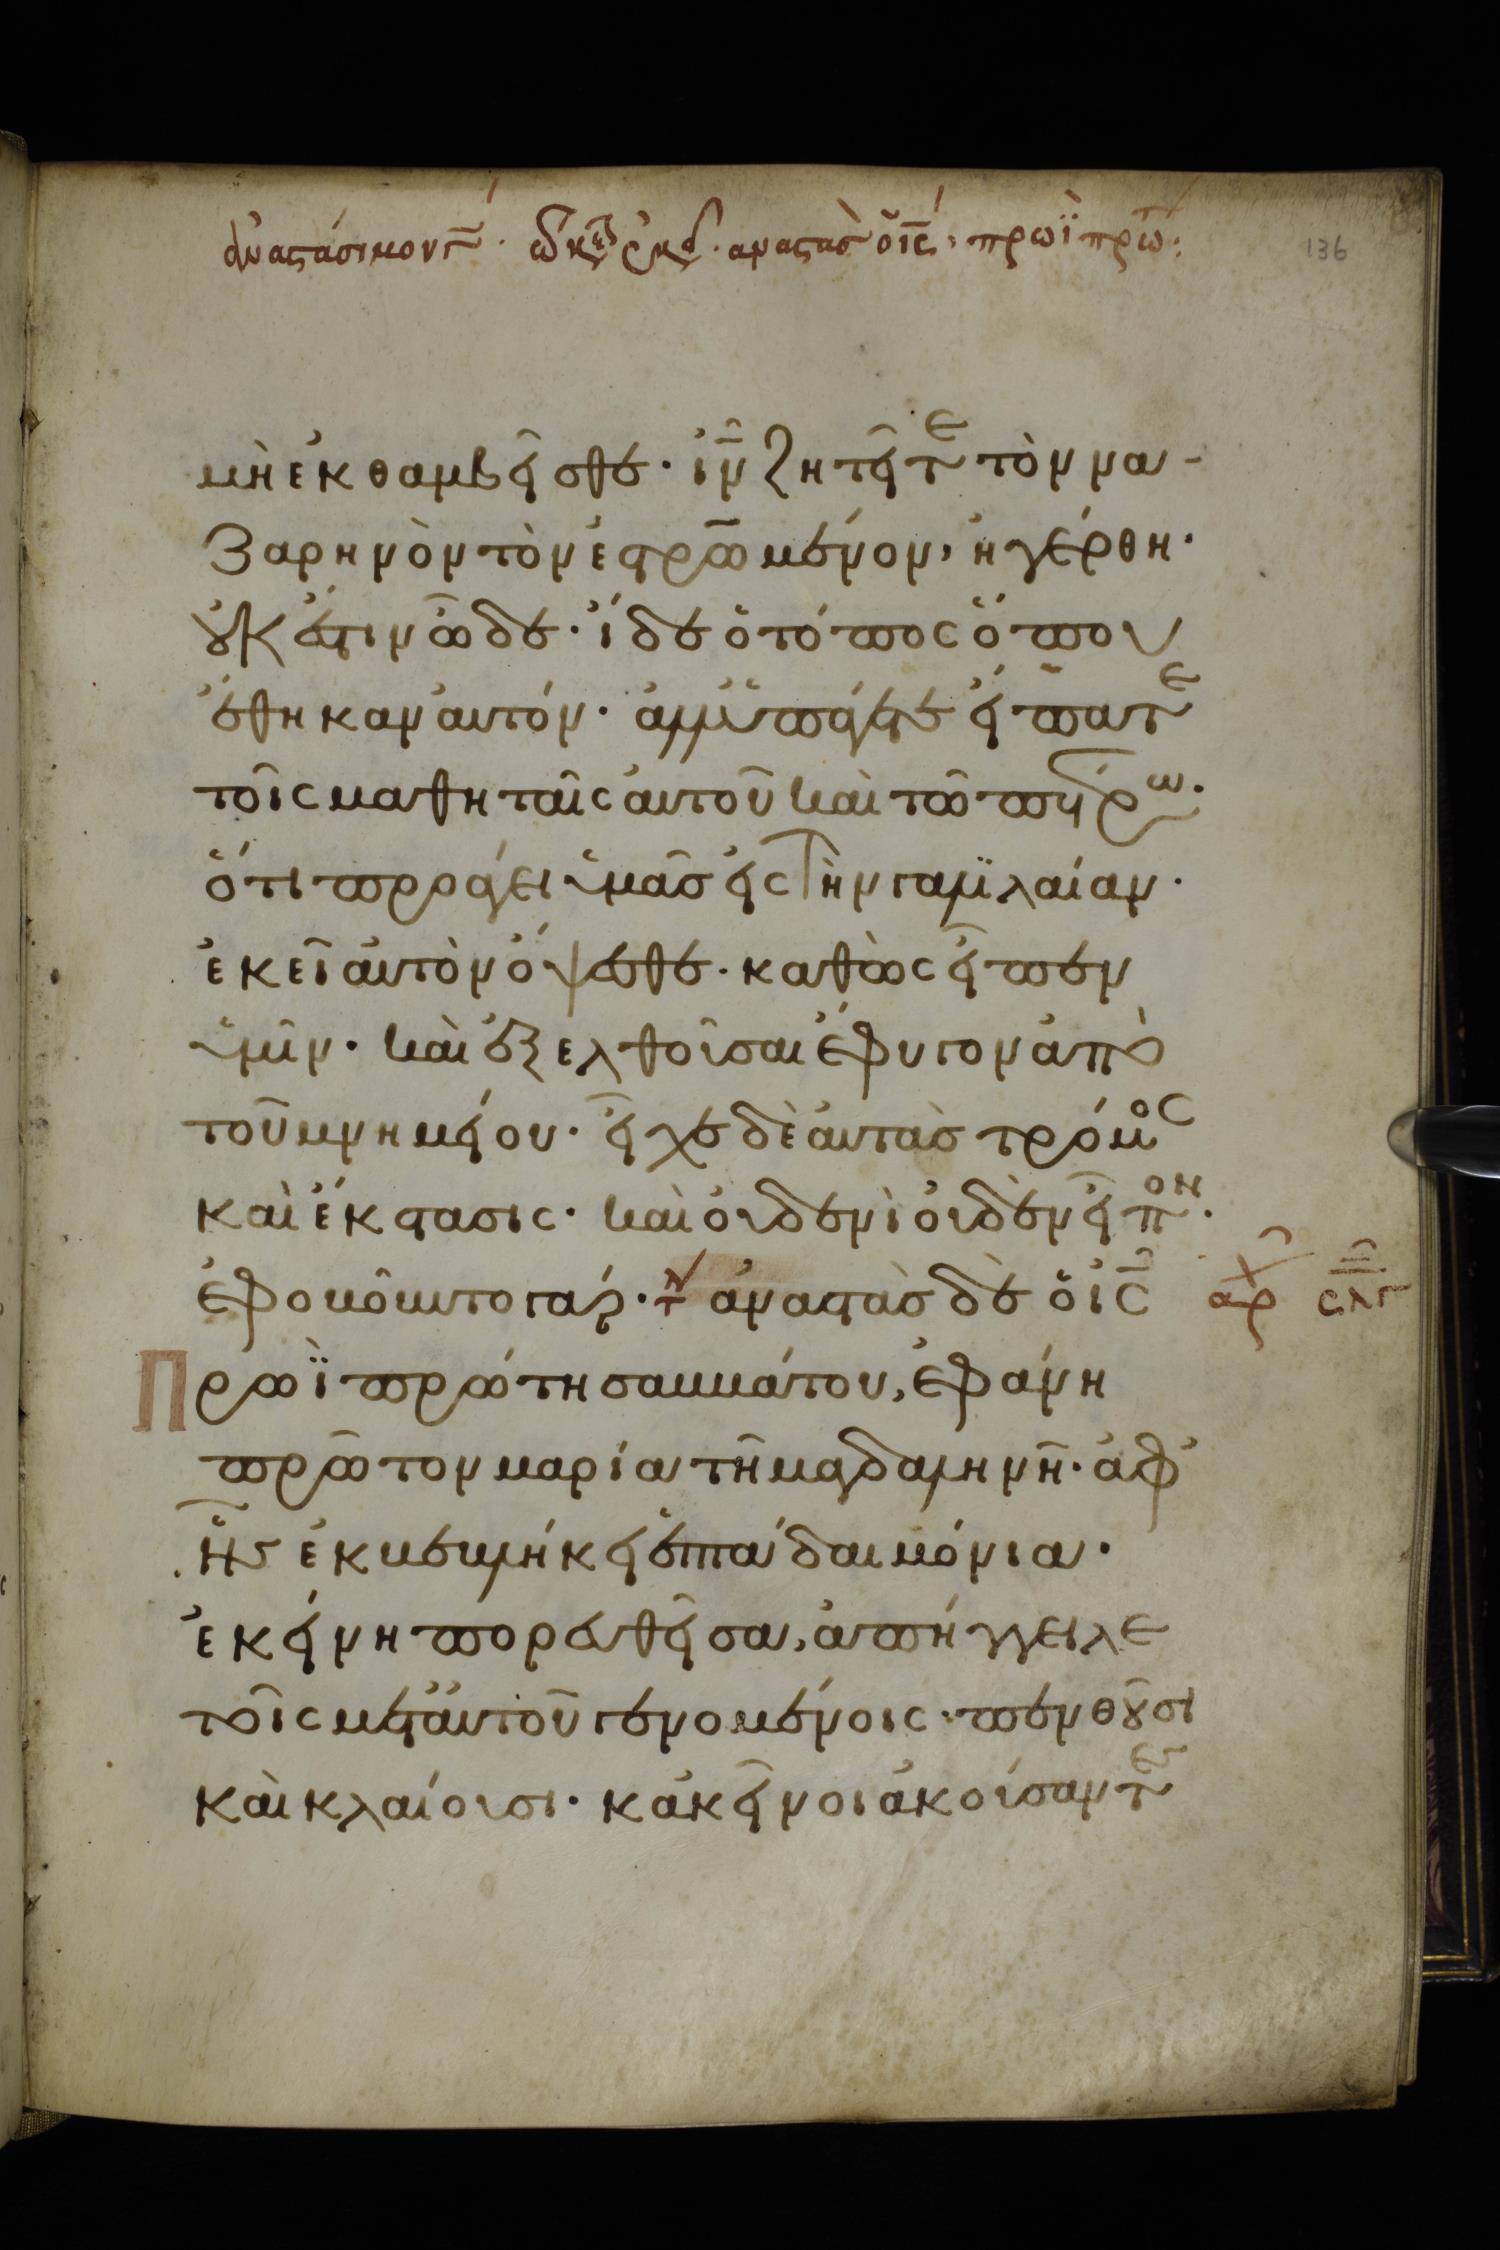 ἀναστάσιμον γ̅ · ἀναστὰσ ὁ ι̅ς̅, πρωῒ πρω̅:
136
μὴ ἐκθαμβεῖσθε· ι̅ν̅ ζητεῖτε τὸν να-
ζαρηνὸν τὸν ἐσταυρωμένον, ἠγέρθη·
οὐκ ἔστιν ὧδε· ἴδε ὁ τόπος ὅπου
ἔθηκαν αὐτόν· ἀλλ' ὑπάγετε εἴπατε
τοῖς μαθηταῖς αὐτοῦ καὶ τῶ πέτρω·
ὅτι προάγει ὑμᾶσ εἰς τὴν γαλιλαίαν·
ἐκεῖ αὐτὸν ὄψεσθε· καθὼς εἶπεν
ὑμῖν· καὶ ἐξελθοῦσαι ἔφυγον ἀπὸ
τοῦ μνημείου· εἶχε δὲ αὐτὰσ τρόμος
καὶ ἔκστασις· καὶ οὐδενὶ οὐδὲν εἶπον·
ἐφοβοῦντο γάρ· τλ ἀναστὰσ δὲ ὁ ι̅ς̅ αρχ σλγ
Πρωῒ πρώτη σαββάτου, ἐφάνη
πρῶτον μαρία τῆ μαγδαληνῆ· ἀφ'
ἧς ἐκβεβλήκει ἑπτὰ δαιμόνια·
ἐκείνη πορευθεῖσα, ἀπήγγειλε
τοῖς μετ' αὐτοῦ γενομένοις· πενθοῦσι
καὶ κλαίουσι· κἀκεῖνοι ἀκούσαντες